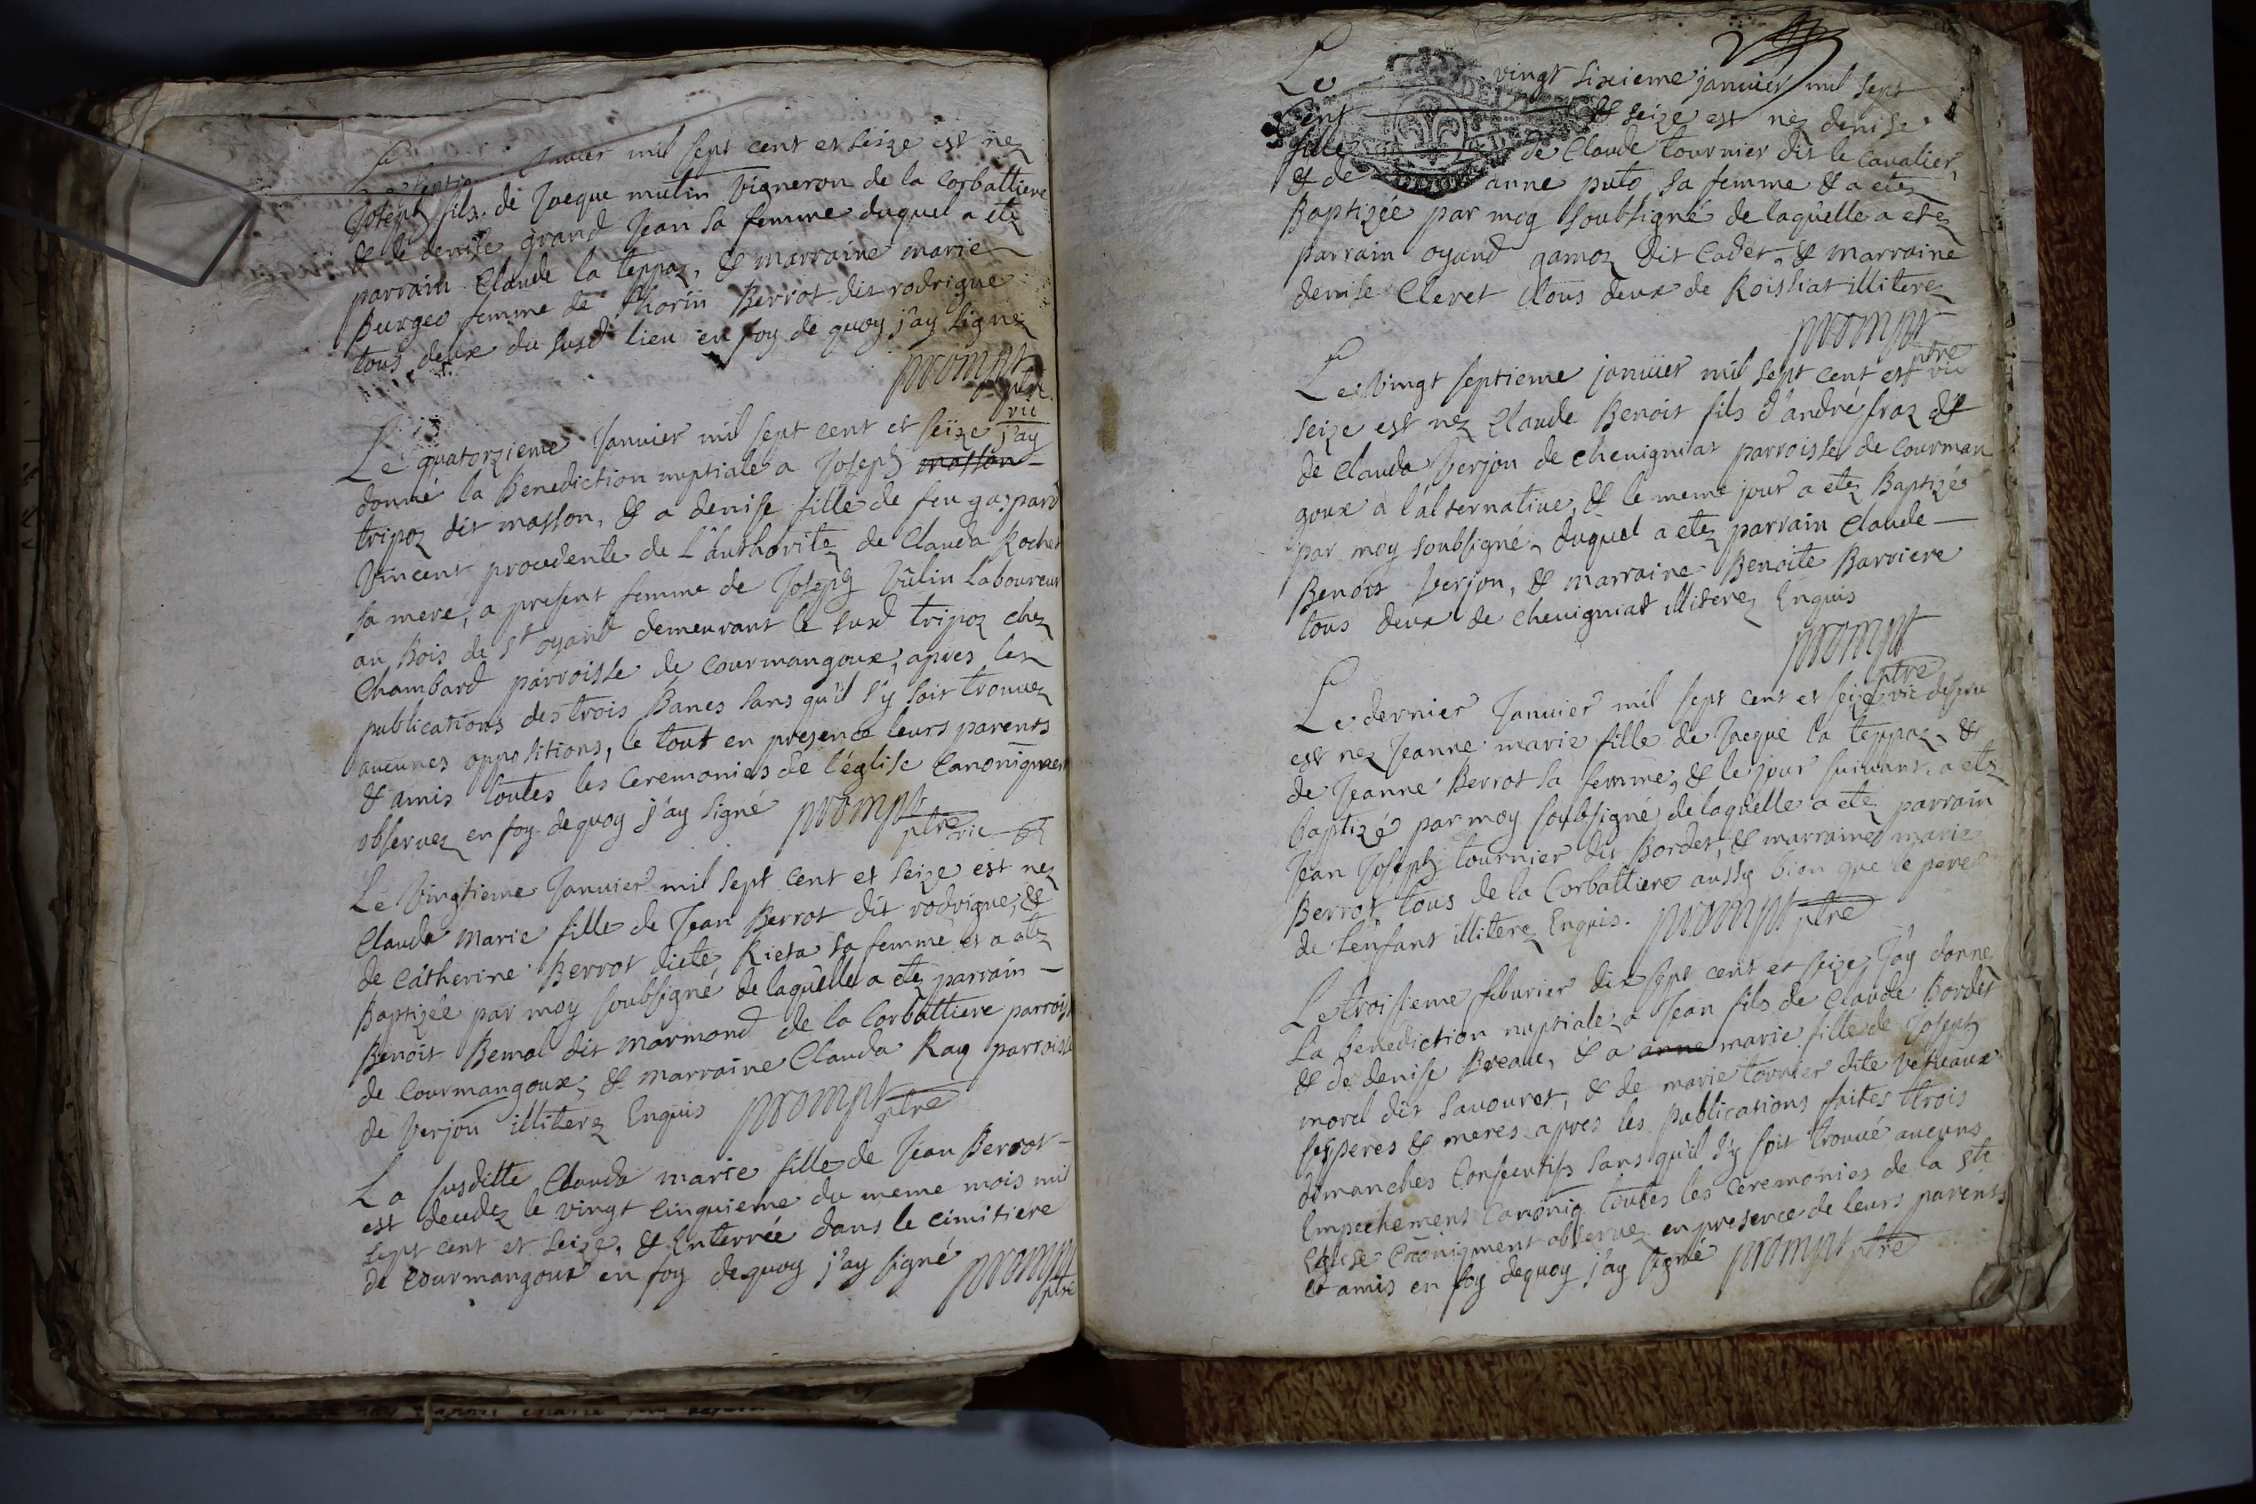 Le septie janvier mil sept cent et seize est nez
Joseph fils de Jacque mulin vigneron de la corbattiere
& de denise grand Jean sa femme duquel a etez
parrain Claude la teppaz, & marraine marie
Burges femme de Thorin Berrot dit rodrigue
tous deux du susd lieu en foy de quoy j'ay signez
prompt
ptre
vic
Le quatorzieme Janvier mil sept cent et seize j'ay
donné la Benediction nuptiale a Joseph masson
tripoz dit masson, & a denise fille de feu gaspard
Vincent procedente de L'authorite de Clauda Rochet
sa mere, a present femme de Joseph Vulin laboureur
au Bois de St oyand demeurant le susd tripoz chez
Chambard parroisse de courmangoux, apres les
publications des trois Bancs sans qu'il s'y soit trouvez
aucunes oppositions, le tout en presence leurs parents
& amis toutes les Ceremonies de l'église Canoniqmen
observez en foy de quoy j'ay signé prompt
ptre vic
Le Vingtieme Janvier mil sept cent et seize est nez
Clauda Marie fille de Jean Berrot dit rodrigue, &
de Catherine Berrot dicte Rieta sa femme et a etez
Baptizée par moy soubsigné de laquelle a etez parrain
Benoit Bemol dit marmond de la Corbattiere parroiss
de Courmangoux, & marraine Clauda Ray parroisse
de Verjon illiterez Enquis prompt
ptre
La susditte Clauda marie fille de Jean Berrot
est decedez le vingt cinquieme du meme mois mil
sept cent et seize, & Enterrée dans le cimitiere
de courmangoux en foy dequoy j'ay signé prompt
ptre
Le vingt sixieme janvier mil sept
cent & seize est nez denise
fille de Claude tournier dit le Cavalier,
& de anne puto sa femme & a etez
Baptizée par moy soubsigné de laquelle a etez
parrain oyand gamoz dit Cadet, & marraine
denise Clevet tous deux de Roissiat illiterez
prompt
ptre
vic
Le Vingt septieme janvier mil sept cent et
seize est nez Claude Benoit fils d'andré fraz &
de Clauda Verjon de chevigniat parroisse de Courman
goux a l'alternative, & le meme jour a etez Baptizé
par moy soubsigné, duquel a etez parrain Claude
Benoit Verjon, & marraine Benoite Barriere
tous deux de chevigniat illiterez Enquis
prompt
ptre
Le dernier Janvier mil sept cent et seize vic
est nez Jeanne marie fille de Jacque la teppaz, &
de Jeanne Berrot sa femme, & le jour suivant a etez
baptizé par moy soubsigné de laquelle a etez parrain
Jean Joseph tournier dit Bordet, & marraine marie
Berrot tous de la Corbattiere aussy bien que le pere
de l'enfant illiterez Enquis. prompt ptre
Le troisieme febvrier dix sept cent et seize J'ay donnez
La Benediction nuptiale a Jean fils de Claude Bordet
& de denise Breaux, & a anne marie fille de Joseph
morel dit savouret, & de marie tornier dite vetueaux
ses peres & meres apres les publications faites trois
dimanches Consecutifs sans qu'il s'y soit trouvé aucuns
Empechemens Canoniq. toutes les ceremonies de la Ste
Eglise Canoniqment observez en presence de leurs parents
et amis en foy dequoy j'ay signé prompt ptre